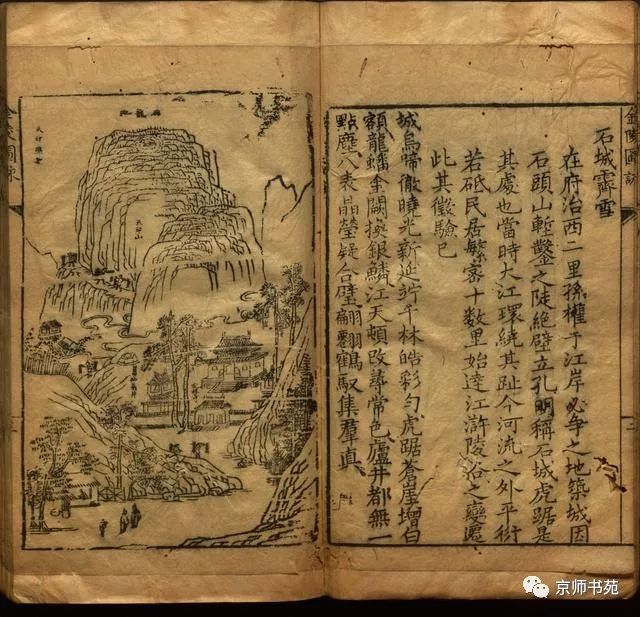 金陵圖詠
石城霽雪
在府治西二里孫權于江岸必爭之地築城因
石頭山塹鑿之陡絕壁立孔明稱石城虎踞是
其處也當時大江環繞其趾今河流之外平衍
若砥民居繁密十數里始達江滸陵谷之變遷
此其徵驗已
城烏啼徹曉光新延竚千林皓彩勻虎踞蒼崖增白
額龍蟠金闕換銀鱗江天頓改尋常色廬井都無一
點塵八表晶瑩疑合璧翩翩鶴馭集羣真
天印樵歌
天印山
金陵圖詠
京师书苑